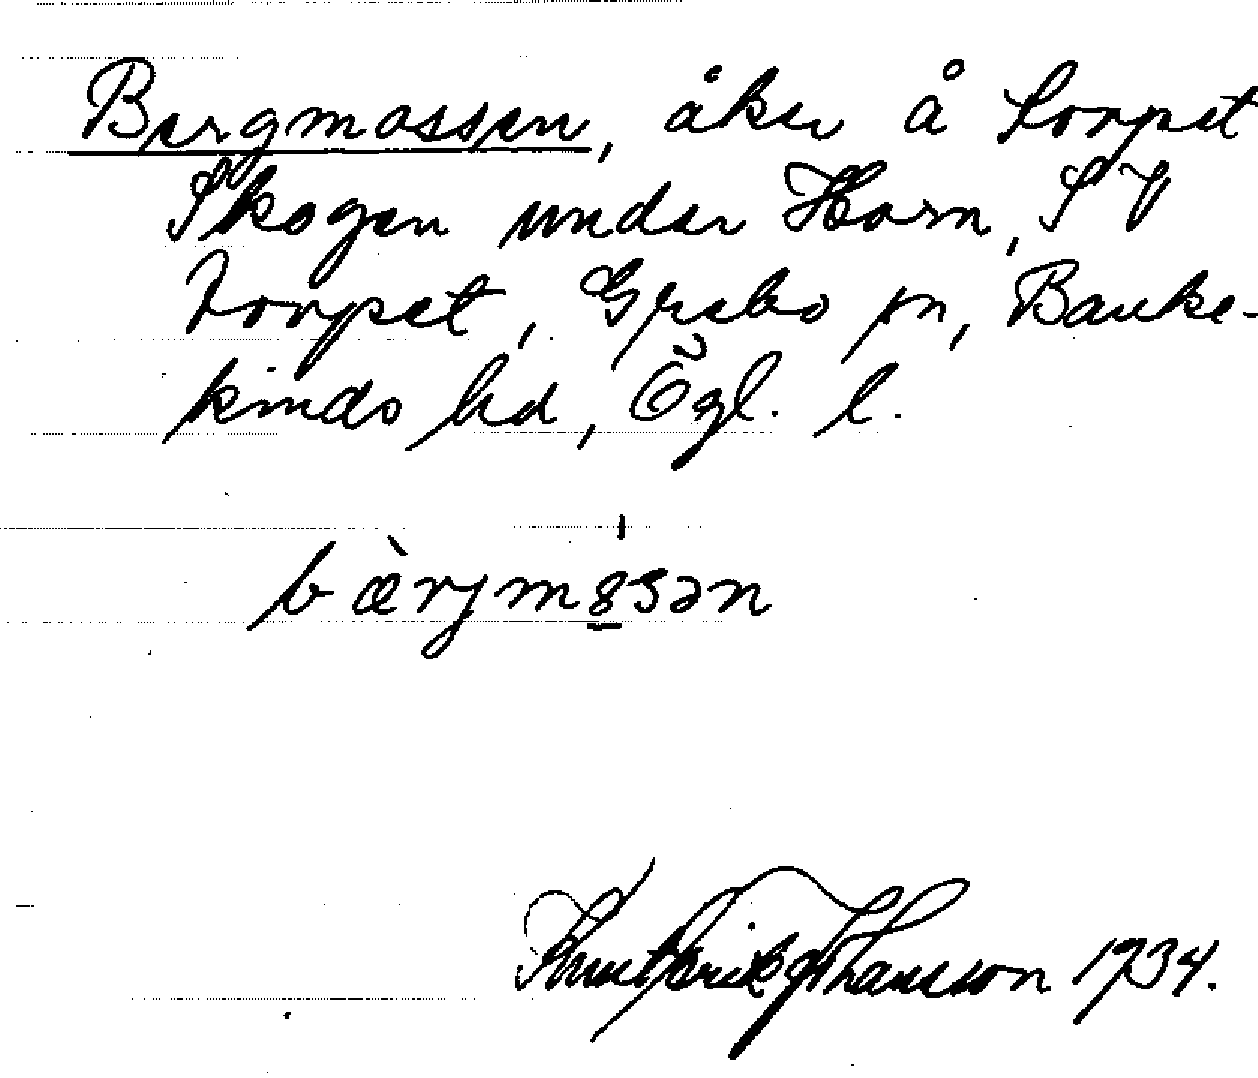 Bergmossen, åker å torpet
Skogen under Horn, SV
torpet, Grebo sn, Banke-
kinds hd, Ögl. l.
bærjmosən
Knut Erik Johansson 1934.